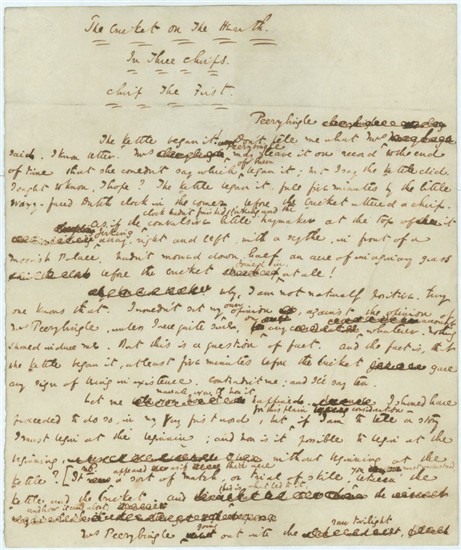 The Cricket on The Hearth.
In Three Chirps.
Chirp The First.
Peerybingle
The Kettle began it! Don't tell me what Mrs
said. I know better. Mrs Peerybingle may leave it on record to the end
of time that she couldn't say which of them began it; but I say the Kettle did.
I ought to know, I hope? The Kettle began it, full five minutes by the little
waxy-faced Dutch clock in the corner, before the Cricket uttered a chirp.
clock hadn't finished striking, and the
As if the convulsive little Haymaker at the top of it
jerking away, right and left, with a scythe, in front of a
Moorish Palace, hadn't mowed down half an acre of imaginary grass
before the Cricket joined in at all!
Why, I am not naturally positive. Every
one knows that. I wouldn't set my own opinion against the opinion of
Mrs Peerybingle, unless I were quite sure, on any account whatever. Nothing
should induce me. But this is a question of fact. And the fact is, that
the Kettle began it, at least five minutes before the Cricket gave
any sign of being in existence. Contradict me; and I'll say ten.
Let me narrate exactly how it happened. I should have
proceeded to do so, in my very first word, but for this plain consideration
if I am to tell a story
I must begin at the beginning; and how is it possible to begin at the
beginning, without beginning at the
Kettle?
It appeared as if there were a sort of match, or trial of skill, you must understand, between the
Kettle and the Cricket. And this is what led to it,
and how it came about.
Mrs Peerybingle going out into the raw twilight